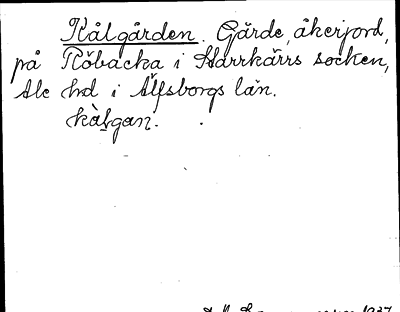 Kålgården. Gärde, åkerjord,
på Röbacka i Starrkärrs socken,
Ale hd i Älfsborgs län.
kàlgan.
1937